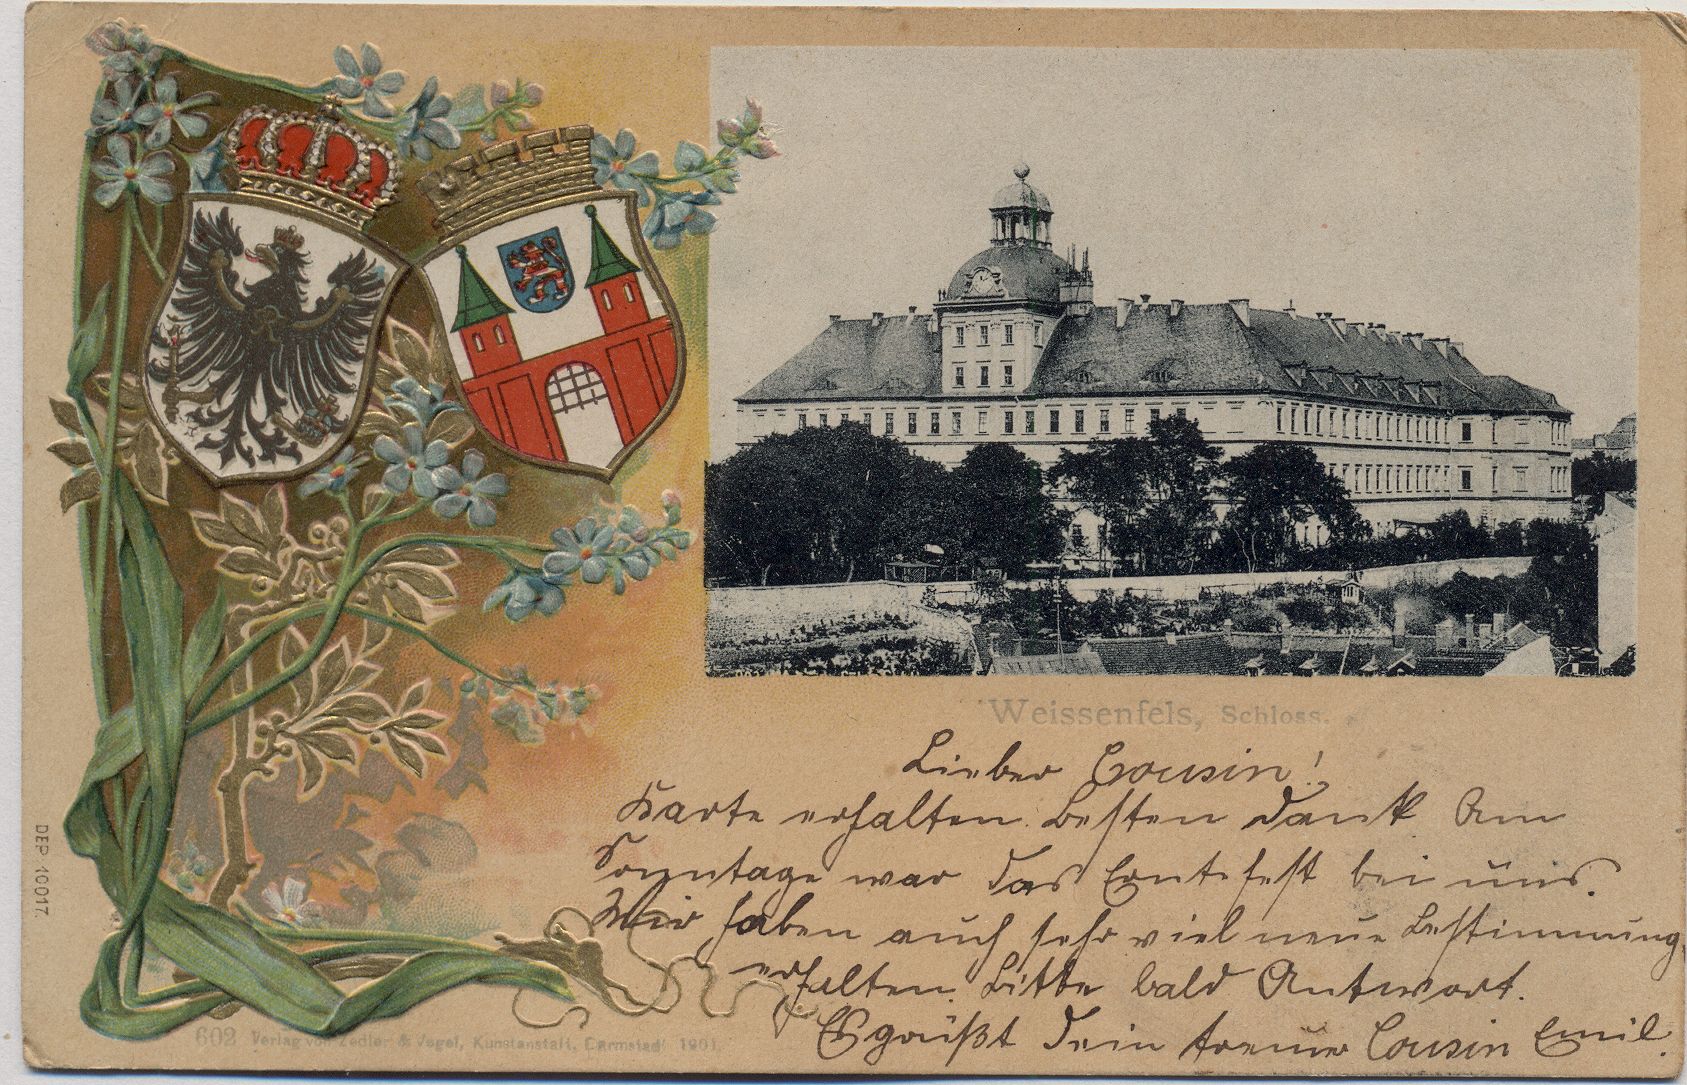 Weissenfels, Schloss.
Lieber Cousin!
Karte erhalten. Besten Dank. Am
Sonntage war das Erntefest bei uns.
Wir haben auch sehr viel neue Bestimmung
erhalten. Bitte bald Antwort.
Es grüßt Dein treuer Cousin Emil.
DEP. 10017.
602 Verlag von Zedler & Vogel, Kunstanstalt, Darmstadt 1901.